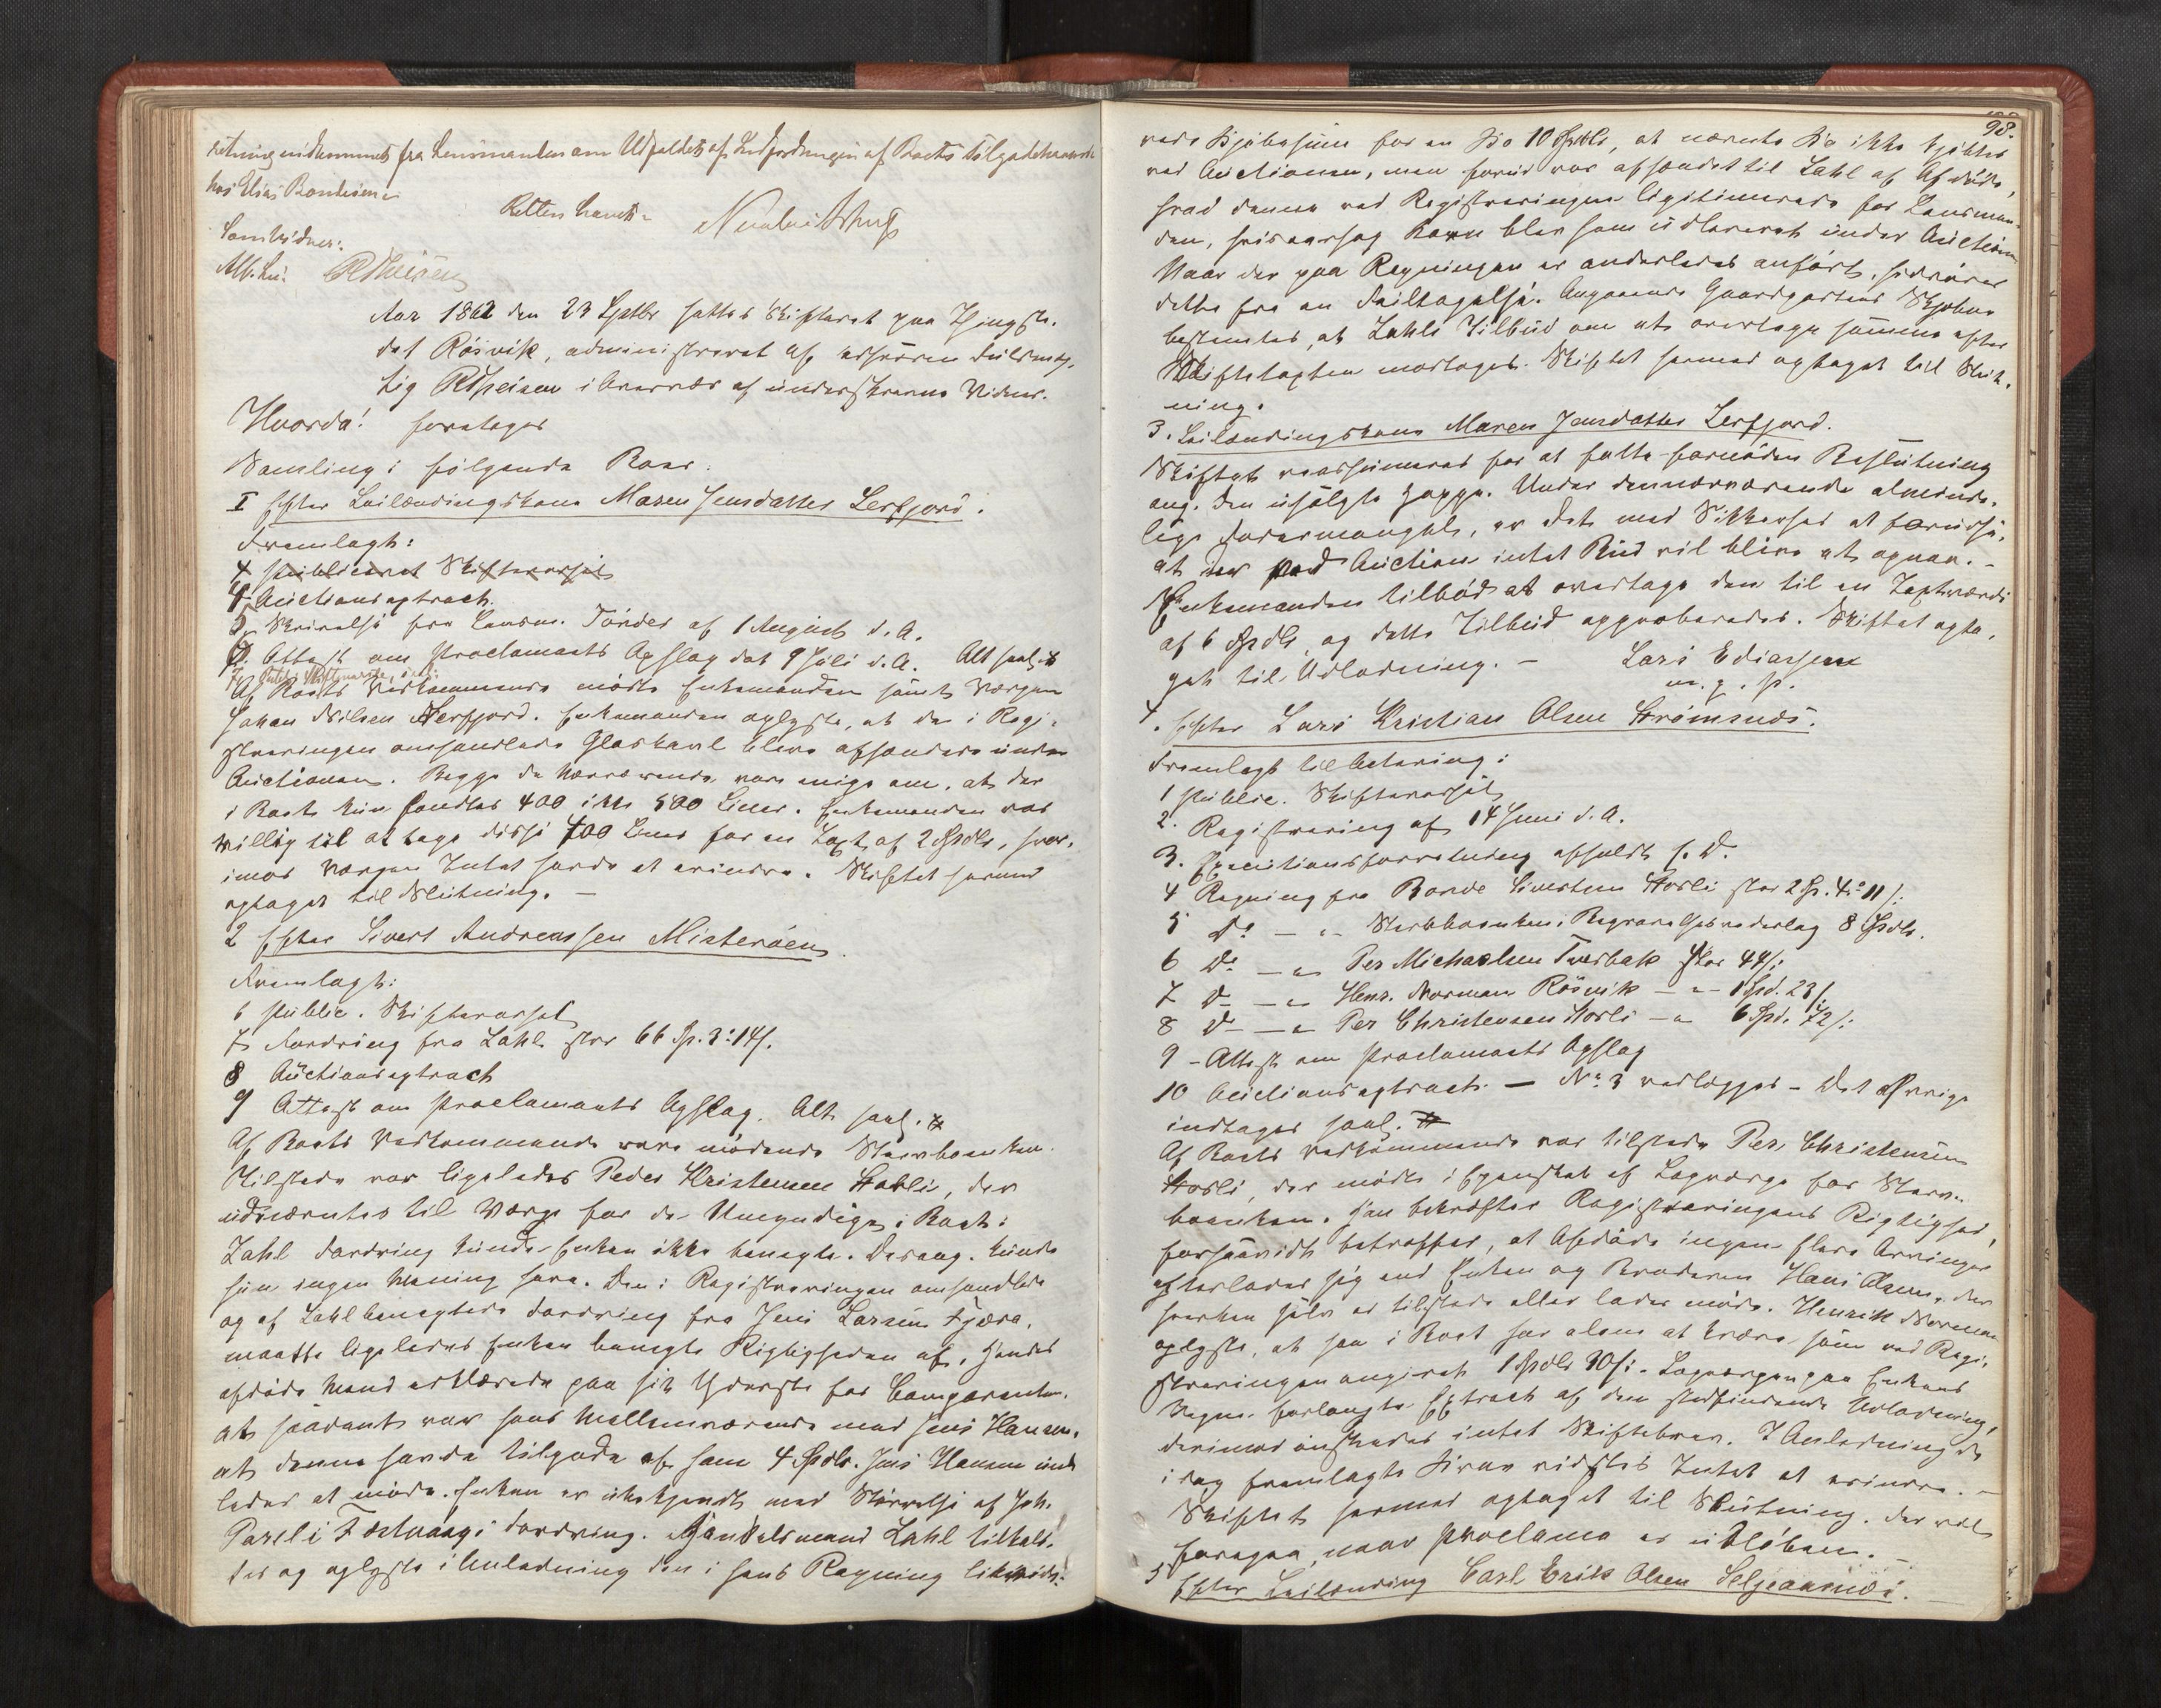 retning indkommet fra Lensmanden om Udfaldet af Indfordringen af Boets Tilgodehavende
hos Elias Bonhiem
Retten hævet
Laugvidner:
Aar 1862 den 23 Septbr sattes Skifteret paa Thingste-
det Røsvik, administreret af edsvoren Fuldmæg-
tig RTheisen i Overvær af underskrevne Vidner.
Hvorda! foretoges
Samling i følgende Boer:
I Efter Leilændingskone Maren Jensdatter Lerfjord.
Fremlagt:
4 publiceret Skiftevarsel
4 Auctionsextract.
5 Skrivelse fra Lensm. Tønder af 1 August d. A.
6. Attest om Proclamaets Opslag dat 9 Juli d. A. Alt saal. #
Af Boets Vedkommende mødte Enkemanden samt Værgen
Johan Nilsen Lerfjord. Enkemanden oplyste, at de i Regi-
streringen omhandlede Glaskavl bleve afhændede under
Auctionen. Begge de Nærværende vare enige om, at der
i Boet kun fandtes 400 ikke 500 Liner. Enkemanden var
willig til at tage disse 400 Liner for en Taxt af 2 Spdlr, hvor-
imod Værgen Intet havde at erindre. Skiftet herved
optaget til Slutning. —
2 Efter Sivert Andreassen Misterøen.
Fremlagt:
6 public. Skiftevarsel
7 Fordring fra Zahl stor 66 Sp. 3: 14 s.
8 Auctionsextract
9 Attest om Proclamaets Opslag. Alt saal. #
Af Boets Vedkommende vare mødende Stervboenken.
Tilstede var ligeledes Peder Kristensen Hosli, der
udnævntes til Værge for de Umyndige i Boet.
Zahl Fordring kunde Enken ikke benegte. Desang. kunde
hun ingen Mening have. Den i Registreringen omhandlede
og af Zahl benegtede Fordring fra Jens Larsen Fjære,
maatte ligeledes Enken benegte Rigtigheden af. Hendes
afdøde Mand erklærede paa sit Yderste for Comparenten,
at saadant var hans Mellemværende med Jens Hansen,
at denne havde tilgode af ham 4 Spdlr. Jens Hansen und-
lader at møde. Enken er ubekjendt med Størrelse af Joh.
Parelius Fordring. Handelsmand Zahl tilkald-
tes og oplyste i Anledning den i hans Regning likvide-
98.
rede Kjøbesum for en Ko 10 Spdlr, at nævnte Ko ikke kjøbtes
ved Auctionen, men forud var afhændet til Zahl af Afdøde,
hvad denne ved Registreringen legitimerede for Lensman-
den, hvisaarsag Koen blev ham udleveret under Auction
Naar der paa Regningen er anderledes anført, hidrører
dette fra en Feiltagelse. Angaaende Gaardpartens Skjøbne
bestemtes, at Zahls Tilbud om at overtage samme efter
Skiftetaxten modtoges. Skiftet hermed optaget til Slut-
ning.
3. Leilændingskone Maren Jensdatter Lerfjord.
Skiftet reassumeret for at fatte fornøden Beslutning
ang. den usolgte Hoppe. Under dennærværende alminde-
lige Fodermangel, er det med Sikkerhed at forudse,
at der ved Auction intet Bud vil blive at opnaa. –
Enkemanden tilbød at overtage den til en Taxtværdi
af 6 Spdlr, og dette Tilbud approberedes. Skiftet opta-
get til Udlodning. –
Lars Ediassen
m. p. P.
4. Efter Lars Kristian Olsen Strømsnæs.
Fremlagt til Actering:
1 public. Skiftevarsel
2. Registrering af 14 Juni d. A.
3. Executionsforretning afholdt s. D.
4 Regning fra Bonde Sivertsen Hosli stor 2 Sp. 4: 11 s:
5 Do — " Stervboenken. Begravelsesvederlag 8 Spdlr.
6 Do — " Per Michaelsen Tverbak stor 44 s:
7 Do — " Henr. Norman Røsvik — " – 1 Spd. 23 s:
8 Do — " Per Christensen Hosli — " 6 Spd. 72 s:
9 – Attest om Proclamaets Opslag
10 Auctionsextract. — No 3 vedlægges – Det Øvrige
indtages saal. #
Af Boets Vedkommende var tilstede Per Christensen
Hosli, der mødte i Egenskab af Laugværge for Sterv-
boenken. Han bekræfter Registreringens Rigtighed,
forsaavidt betræffer, at Afdøde ingen flere Arvinger
efterlader sig end Enken og Broderen Hans Olsen, der
hverken selv er tilstede eller lader møde. Henrik Norman
oplyste, at han i Boet har alene at kræve som ved Regi-
streringen angivet 1 Spdlr 30 s:. Laugværgen paa Enkens
Vegne forlangte Extract af den stedfindende Udlodning,
derimod ønskedes intet Skiftebrev. I Anledning de
i dag fremlagte Krav vidstes Intet at erindre. –
Skiftet hermed optaget til Slutning, der vil
foregaa, naar Proclama er udløben. –
5 Efter Leilænding Carl Erik Olsen Seljeaasnæs. —